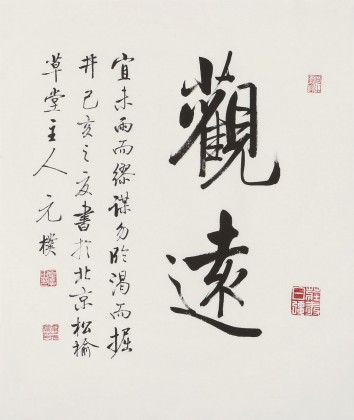 觀遠
宜未雨而繆謀勿臨渴而掘
井己亥之夏書於北京松榆
草堂主人元樸